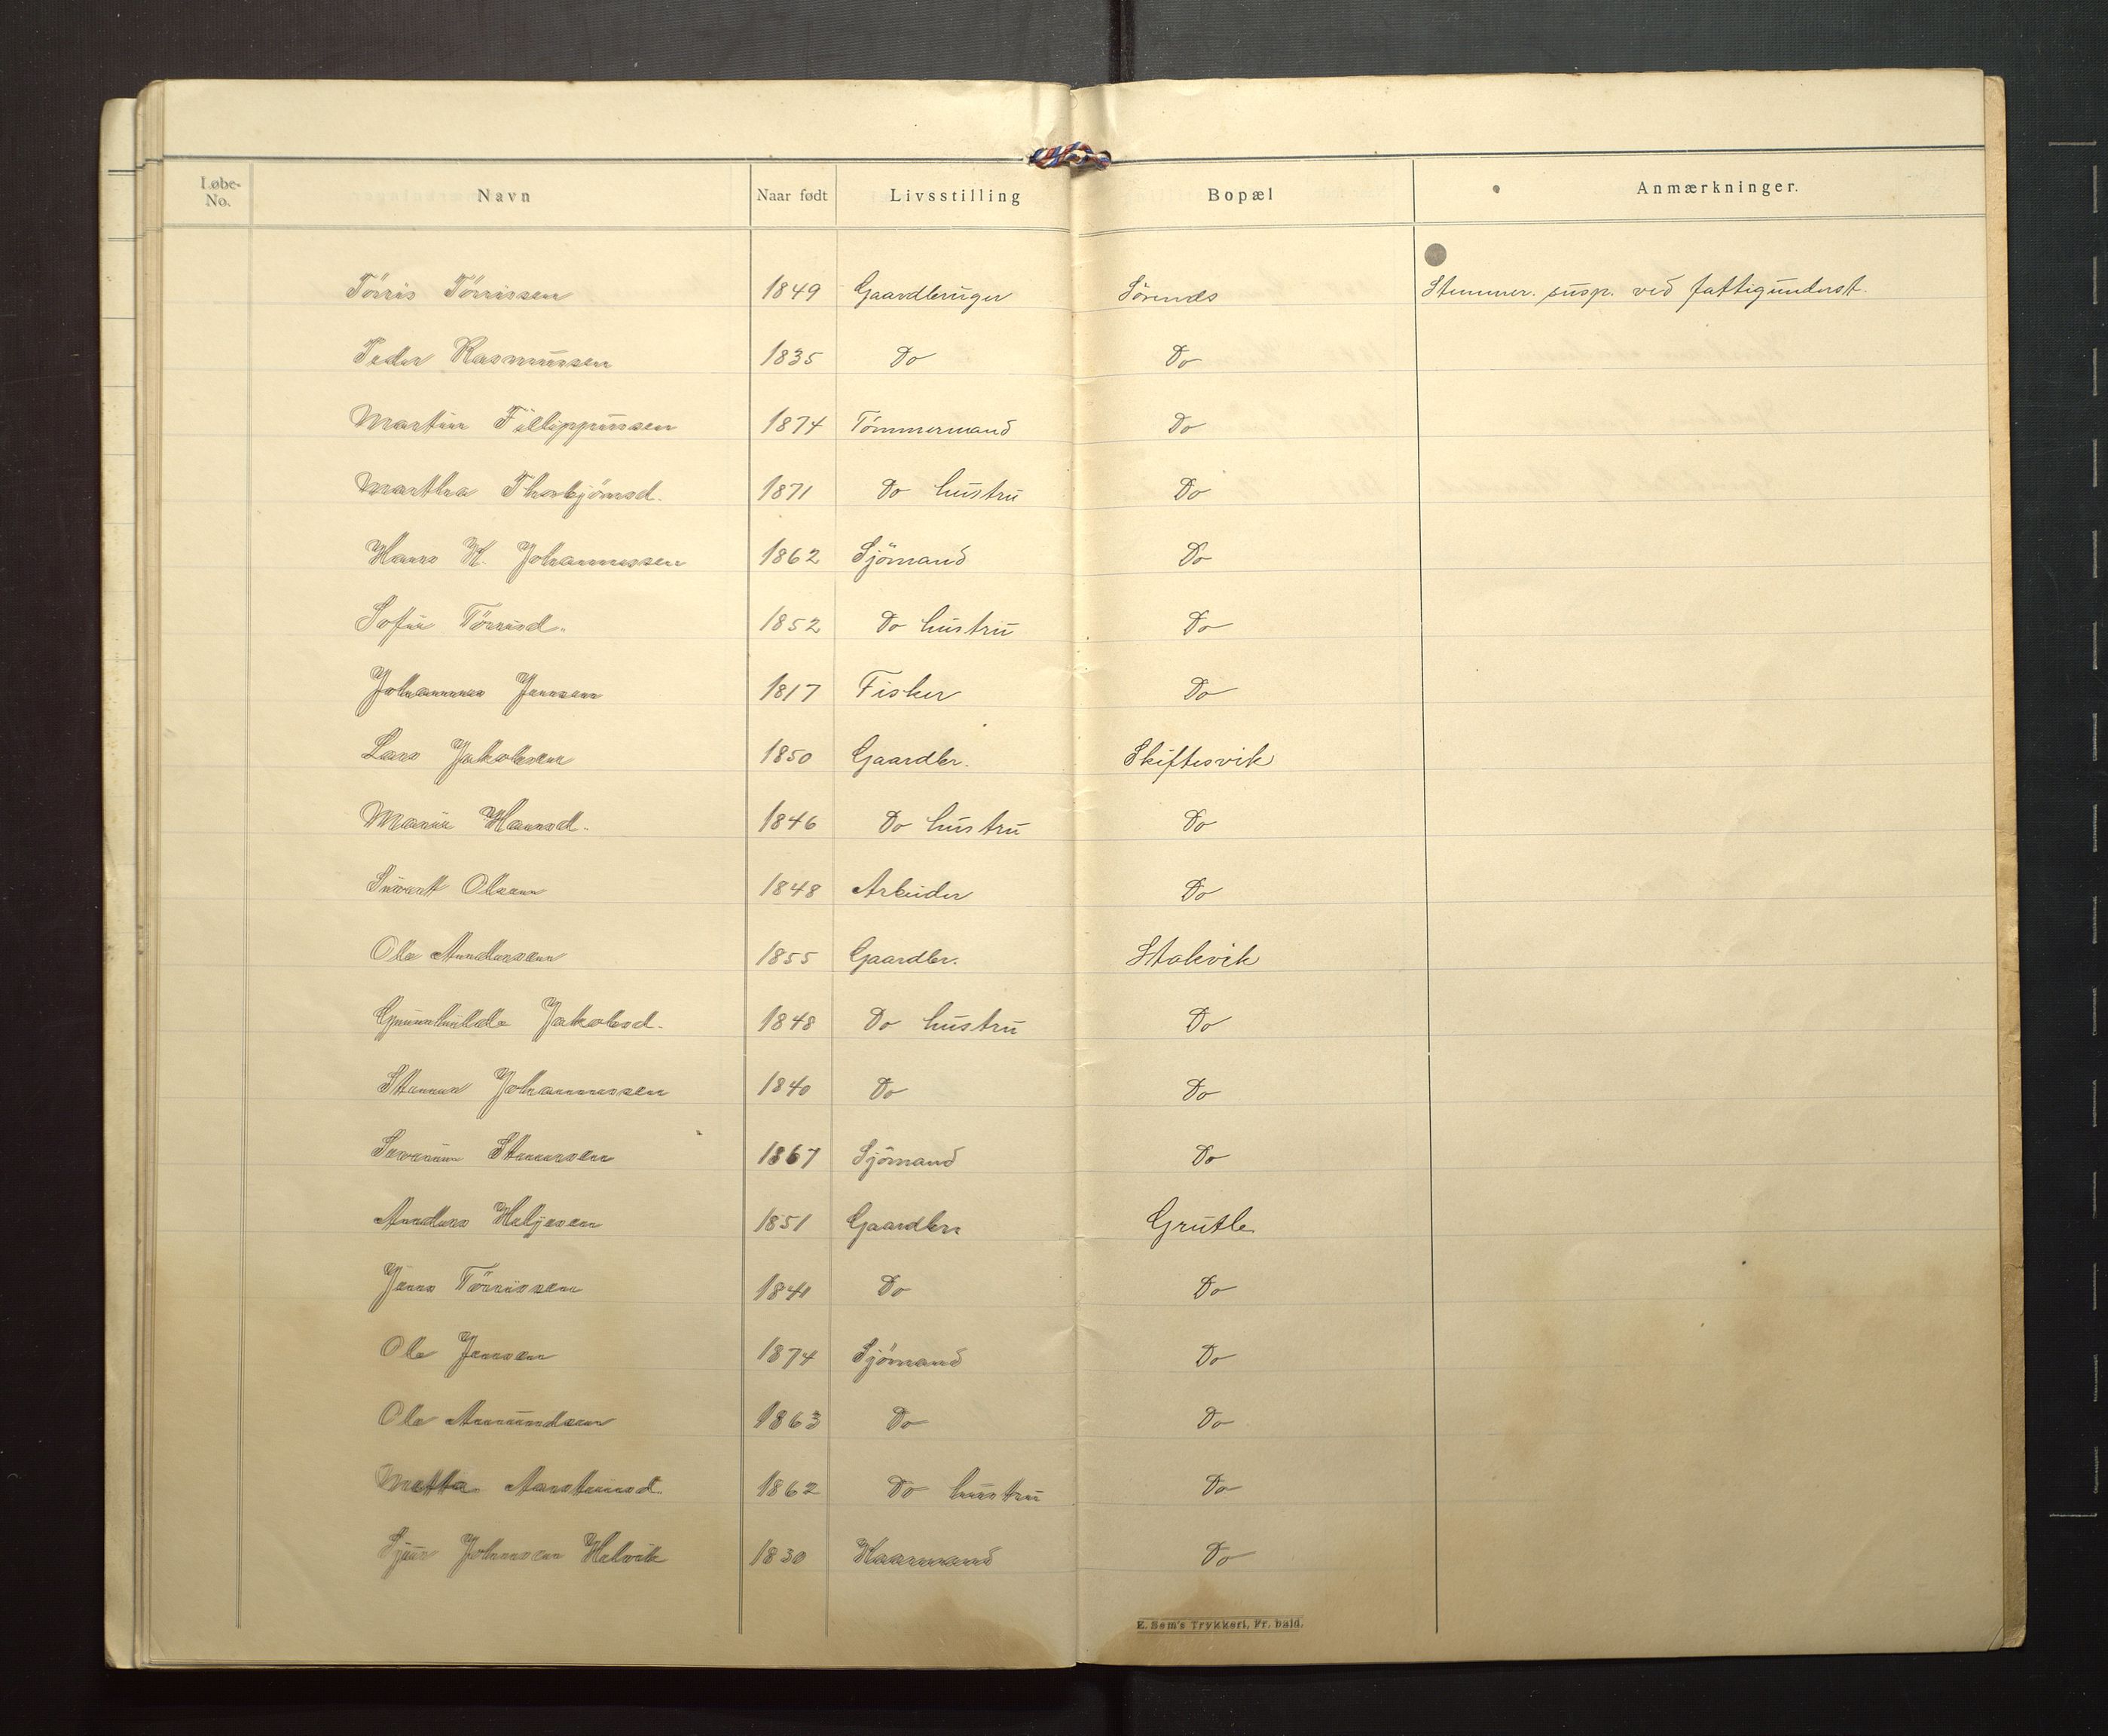 Løbe-No. Navn Naar født Livsstilling Bopæl Anmærkninger.
Törris Törrissen 1849 Gaardbruger Sörends Stemmer. susp. ved fattigunderst.
Peder Rasmussen 1835 Do Do
Martin Fillippussen 1874 Tömmermand Do
Martha Thorbjörnsd. 1871 Do hustru Do
Hans H. Johannessen 1862 Sjömand Do
Sofie Törrisd. 1852 Do hustru Do
Johannes Jensen 1817 Fisker Do
Lars Jakobsen 1850 Gaardbr. Skiftesvik
Marie Hansd. 1846 Do hustru Do
Sivert Olsen 1848 Arbeider Do
Ole Andersen 1855 Gaardbr. Stokvik
Gunhilde Jakobsd. 1848 Do hustru Do
Stener Johannessen 1840 Do Do
Severin Stenersen 1867 Sjömand Do
Anders Helgesen 1851 Gaardbr. Grutle
Jens Törrissen 1841 Do Do
Ole Jensen 1874 Sjömand Do
Ole Amundsen 1863 Do Do
Metta Aarsteinsd. 1862 Do hustru Do
Sjur Johnsen Helvik 1830 Kaarmand Do
E. Sem's Trykkeri, Fr. hald.